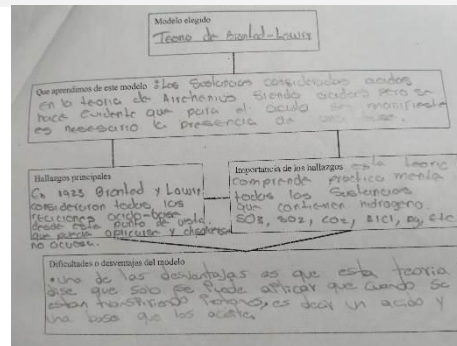 Modelo elegido
Teoria de Bronted-Lowry
Que aprendimos de este modelo: Las Sustancias consideradas acidas
en la teoria de Arrhenius siendo acidas pero se
hace evidente que para el acido se manifieste
es necesario la presencia de una base.
Hallazgos principales
En 1923 Bronted y Lowry
consideraron todas las
reacciones acido-base
desde este punto de vista,
que puede aplicarse y disolverse
no acuosa.
Importancia de los hallazgos esta teoria
comprende practica menta
todas las Sustancias
que contienen hidrogeno.
SO3, SO2, CO2, BICl, Ag, etc
Dificultades o desventajas del modelo
• una de las desventajas es que esta teoria
dise que solo se puede aplicar que cuando se
estan transfiriendo Protones, es decir un acido y
una base que los acepte.